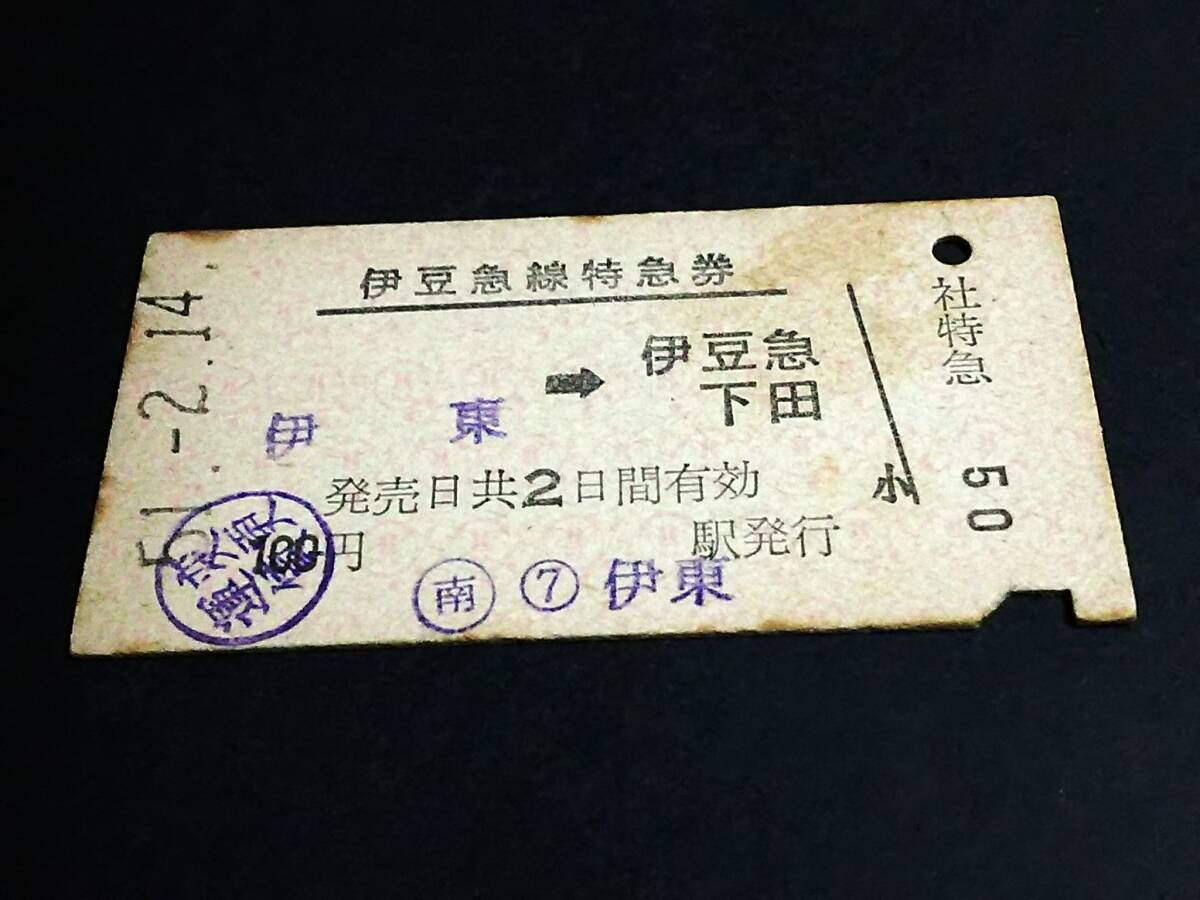 伊豆急線特急券
51.-2.14.
伊東 ➡ 伊豆急下田
発売日共2日間有効
100円
駅発行
㊞南 ⑦ 伊東
小
社特急
50